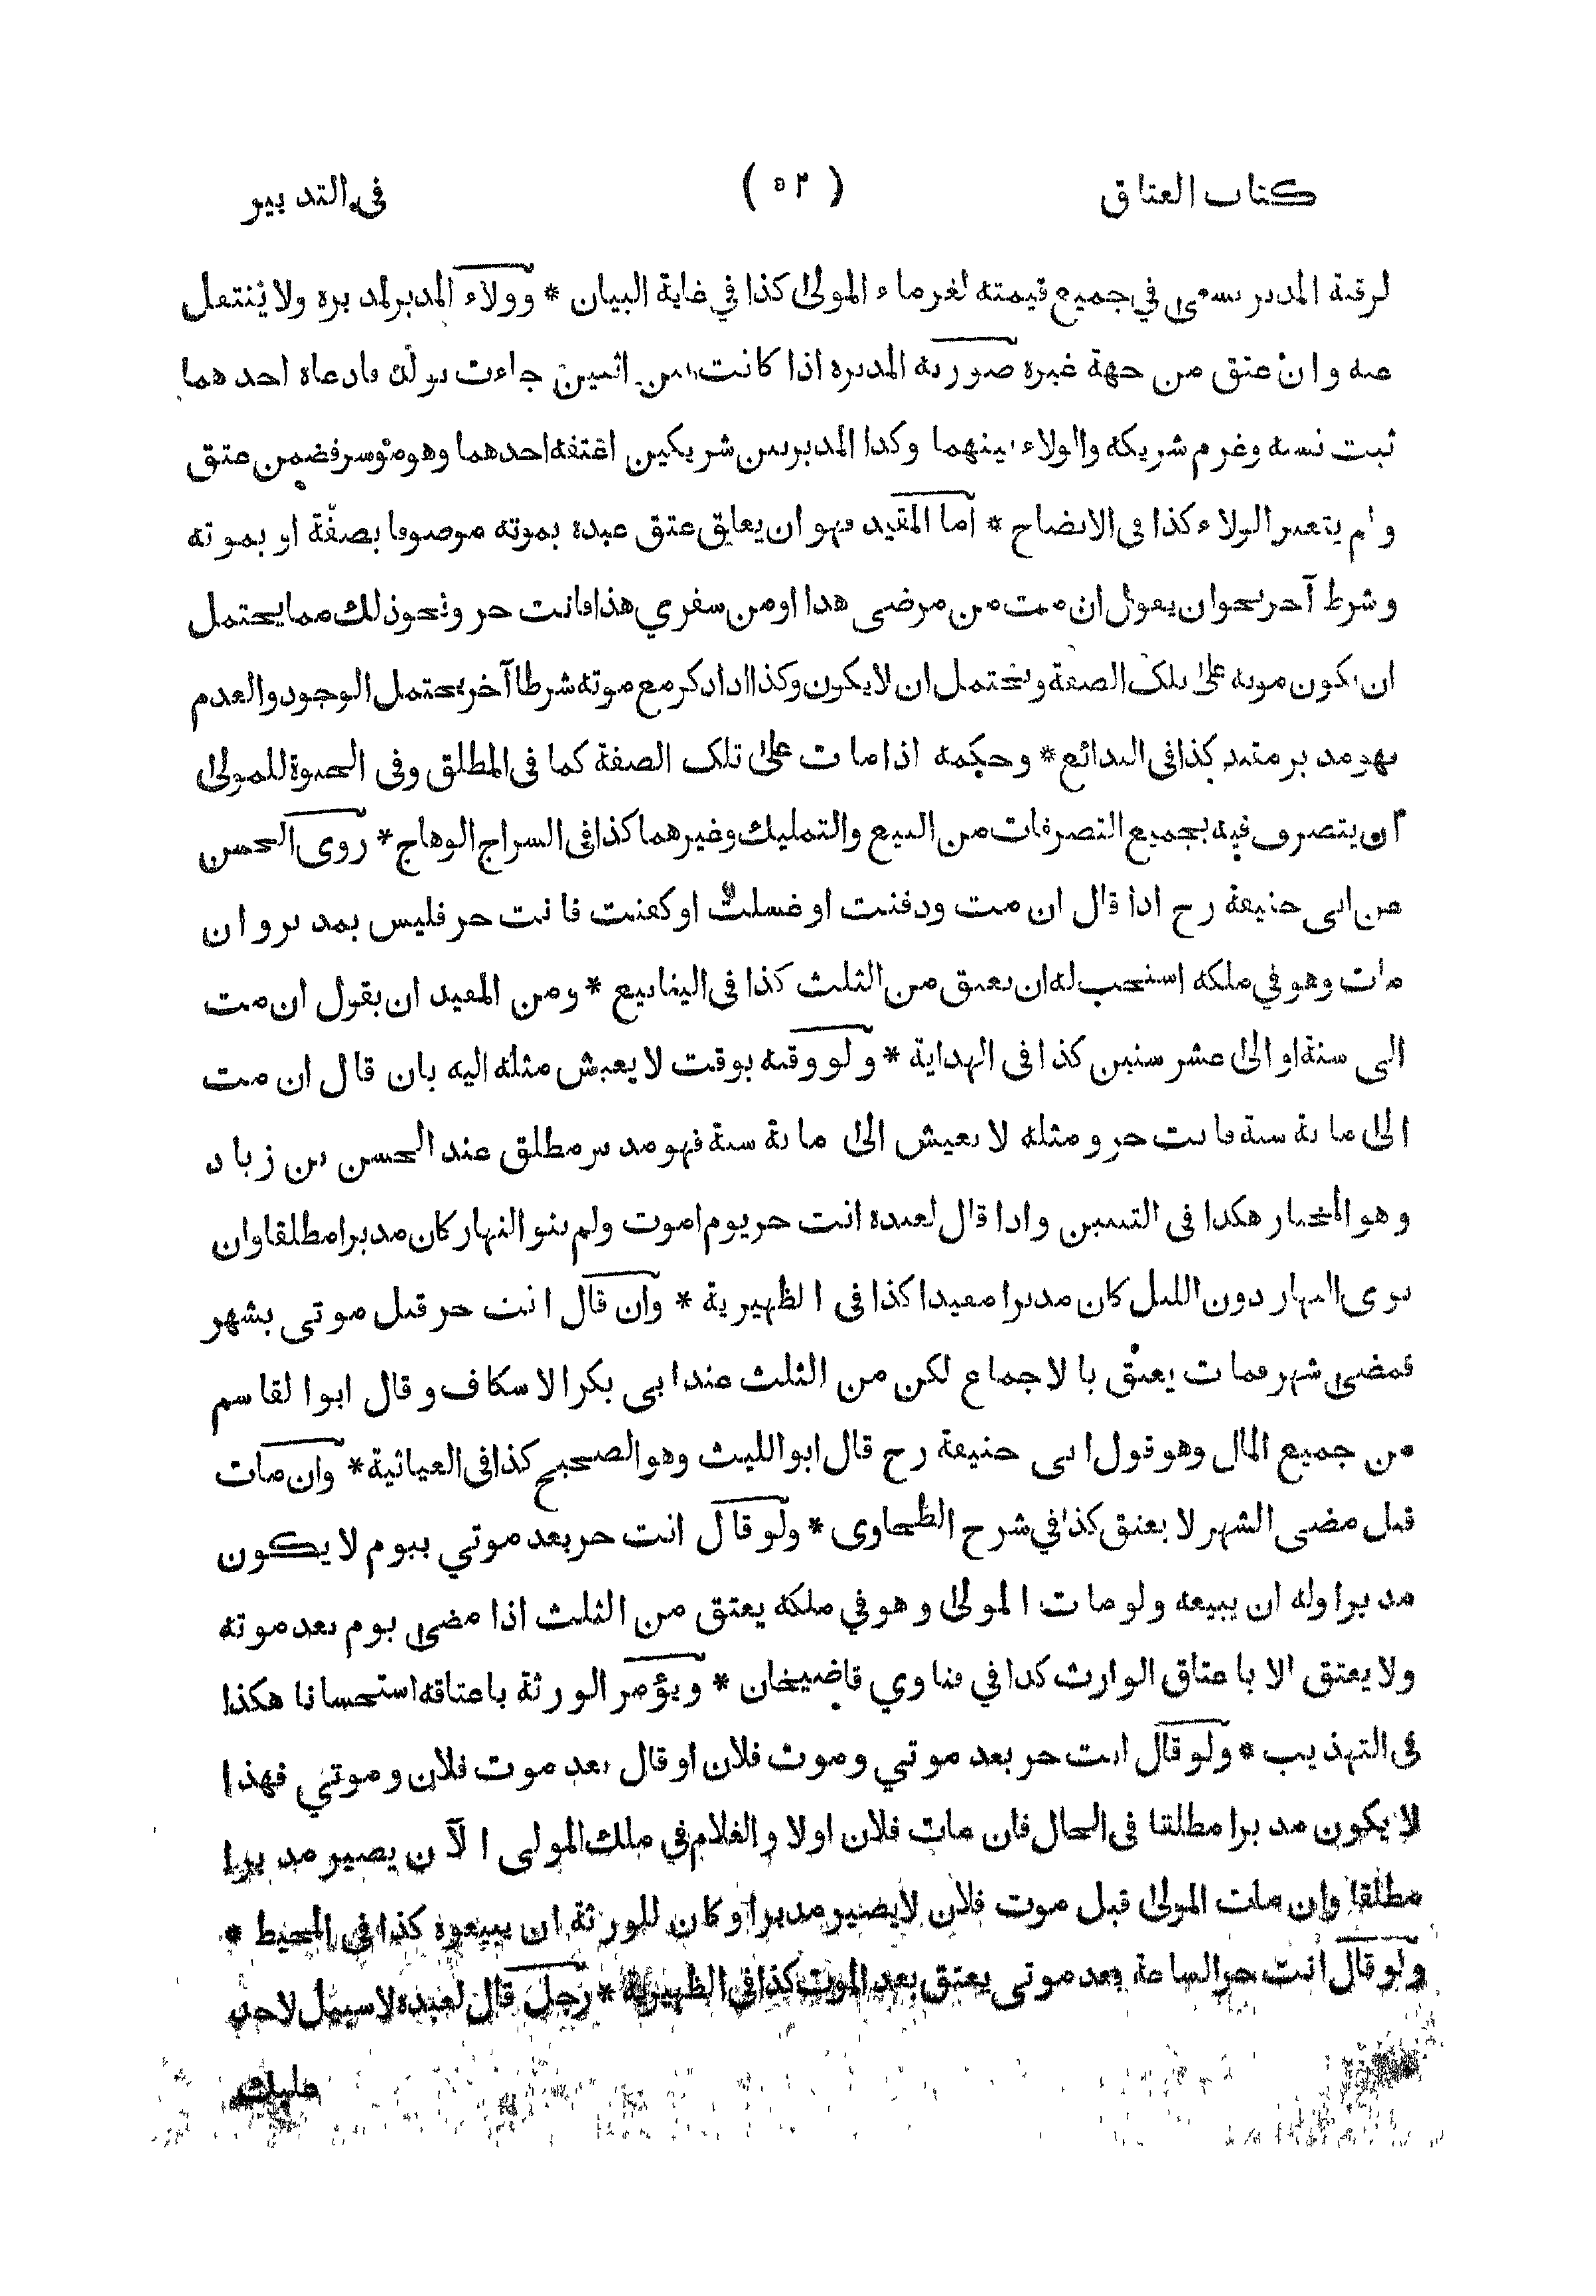 كتاب العتاق ( ٥٢ ) في التدبير
لرقبة المدبر يسعى في جميع قيمته لغرماء المولى كذا في غاية البيان * وولاء المدبر لمدبره ولا ينتقل
عنه وان عتق من جهة غيره صورته المدبرة اذا كانت بين اثنين جاءت بولد فادعاه احدهما
ثبت نسبه وغرم شريكه والولاء بينهما وكذا المدبر بين شريكين اعتقه احدهما وهو موسر فضمن عتق
ولم يتغير الولاء كذا في الايضاح * اما المقيد فهو ان يعلق عتق عبده بموته موصوفا بصفة او بموته
وشرط آخر نحو ان يقول ان مت من مرضي هذا او من سفري هذا فانت حر ونحو ذلك مما يحتمل
ان يكون موته على تلك الصفة ويحتمل ان لا يكون وكذا اذا ذكر مع موته شرطا آخر يحتمل الوجود والعدم
فهو مدبر مقيد كذا في البدائع * وحكمه اذا مات على تلك الصفة كما في المطلق وفي الحيوة للمولى
ان يتصرف فيه بجميع التصرفات من البيع والتمليك وغيرهما كذا في السراج الوهاج * روى الحسن
عن ابي حنيفة رح اذا قال ان مت ودفنت او غسلت او كفنت فانت حر فليس بمدبر وان
مات وهو في ملكه استحب له ان يعتق من الثلث كذا في الينابيع * ومن المقيد ان يقول ان مت
الى سنة او الى عشر سنين كذا في الهداية * ولو وقته بوقت لا يعيش مثله اليه بان قال ان مت
الى مائة سنة فانت حر ومثله لا يعيش الى مائة سنة فهو مدبر مطلق عند الحسن بن زياد
وهو المختار هكذا في التبيين واذا قال لعبده انت حر يوم اموت ولم ينو النهار كان مدبرا مطلقا وان
نوى النهار دون الليل كان مدبرا مقيدا كذا في الظهيرية * وان قال انت حر قبل موتي بشهر
فمضى شهر فمات يعتق بالاجماع لكن من الثلث عند ابي بكر الاسكاف وقال ابو القاسم
من جميع المال وهو قول ابي حنيفة رح قال ابو الليث وهو الصحيح كذا في الغياثية * وان مات
قبل مضي الشهر لا يعتق كذا في شرح الطحاوي * ولو قال انت حر بعد موتي بيوم لا يكون
مدبرا وله ان يبيعه ولو مات المولى وهو في ملكه يعتق من الثلث اذا مضى يوم بعد موته
ولا يعتق الا باعتاق الوارث كذا في فتاوي قاضيخان * ويؤمر الورثة باعتاقه استحسانا هكذا
في التهذيب * ولو قال انت حر بعد موتي وموت فلان او قال بعد موت فلان وموتي فهذا
لا يكون مدبرا مطلقا في الحال فان مات فلان اولا والغلام في ملك المولى الآن يصير مدبرا
مطلقا وان مات المولى قبل موت فلان لا يصير مدبرا وكان للورثة ان يبيعوه كذا في المحيط *
ولو قال انت حر الساعة بعد موتي يعتق بعد الموت كذا في الظهيرية * رجل قال لعبده لا سبيل لاحد
عليك